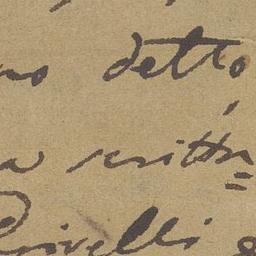 no detto
a scritta=
Crivelli e